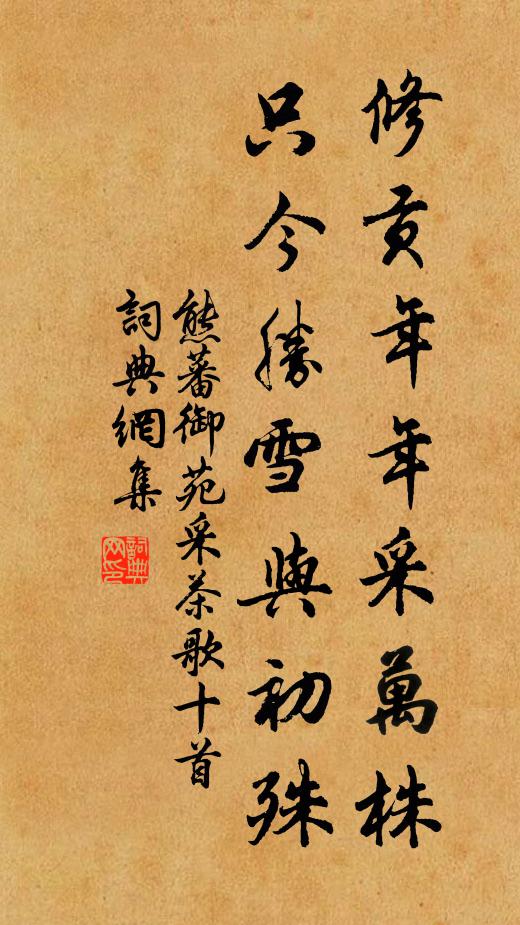 修貢年年采萬株
只今勝雪與初殊
熊蕃御苑采茶歌十首
詞典網集
詞典網印